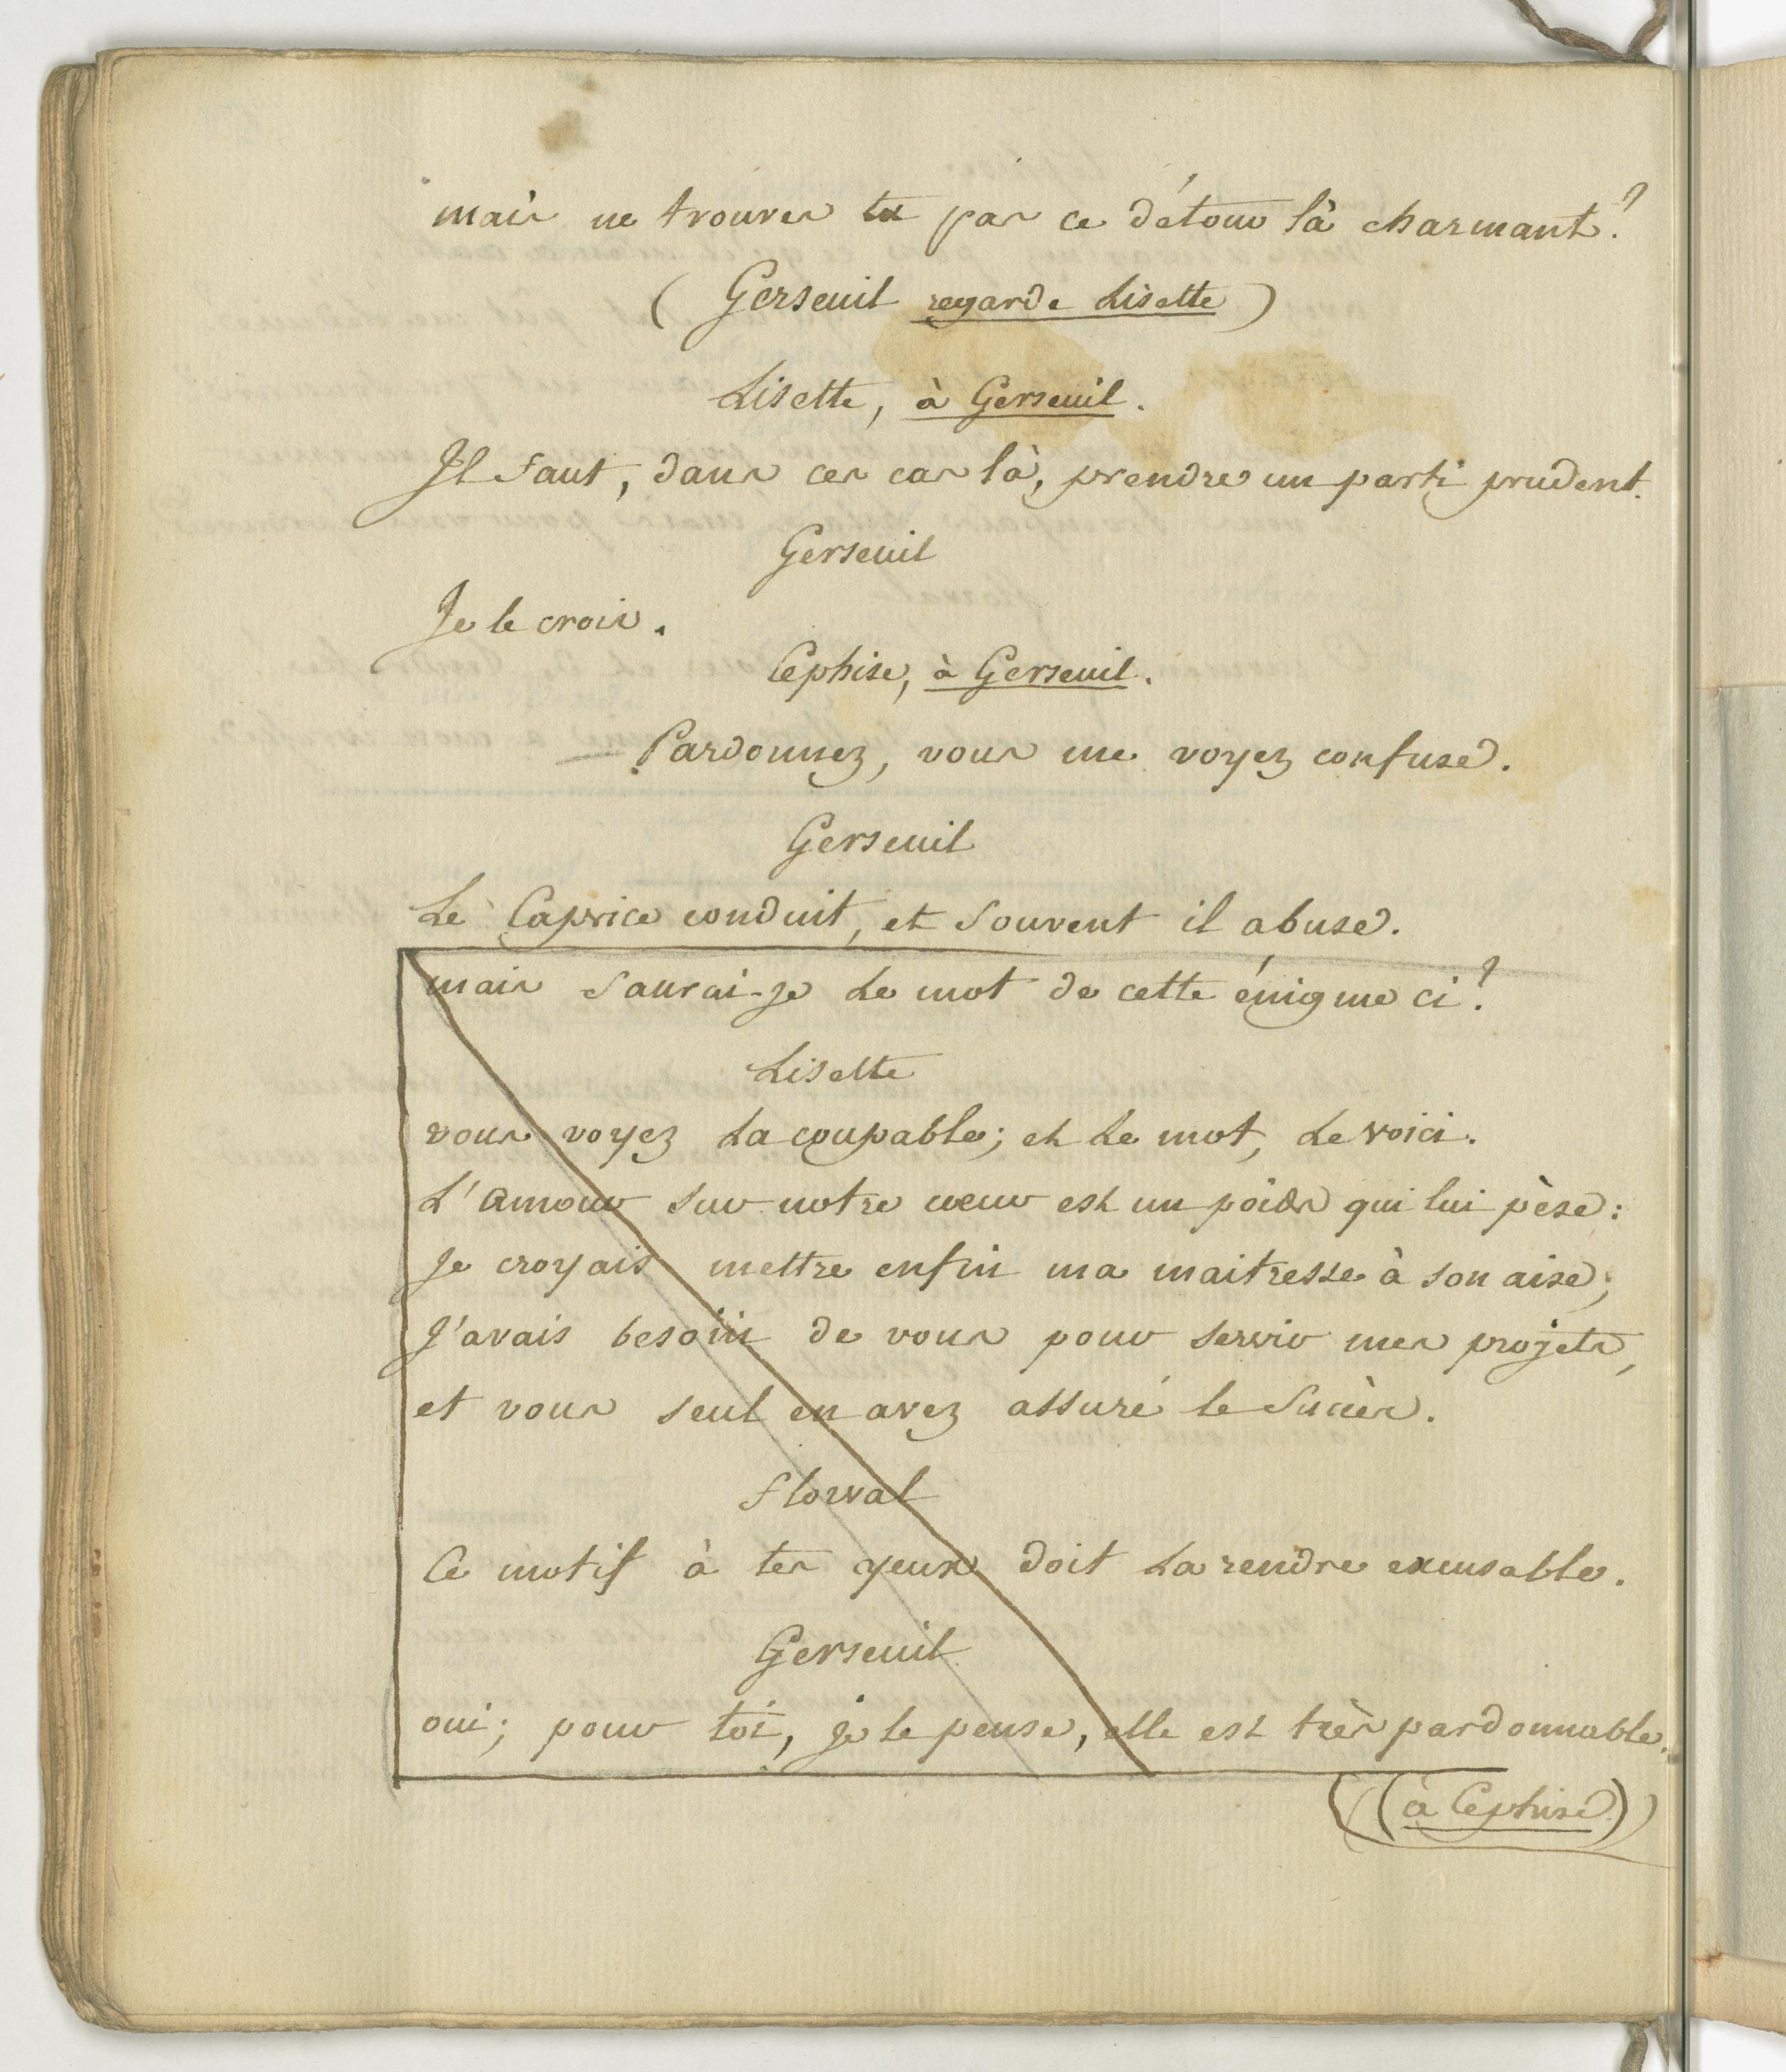 mais ne trouves tu pas ce détour là charmant?
(Gerseuil regarde Lisette)
Lisette, à Gerseuil.
Il faut, dans ces cas là, prendre un parti prudent.
Gerseuil
Je le crois.
Cephise, à Gerseuil.
Pardonnez, vous me voyez confuse.
Gerseuil
Le Caprice conduit, et souvent il abuse.
mais saurai-je le mot de cette énigme ci?
Lisette
vous voyez la coupable; et le mot, le voici.
L'amour sur notre coeur est un poids qui lui pèse:
Je croyais mettre enfin ma maitresse à son aise;
J'avais besoin de vous pour servir mes projets,
et vous seul en avez assuré le succès.
Florval
Ce motif à tes yeux doit la rendre excusable.
Gerseuil
oui; pour toi, je le pense, elle est très pardonnable.
(à Cephise)